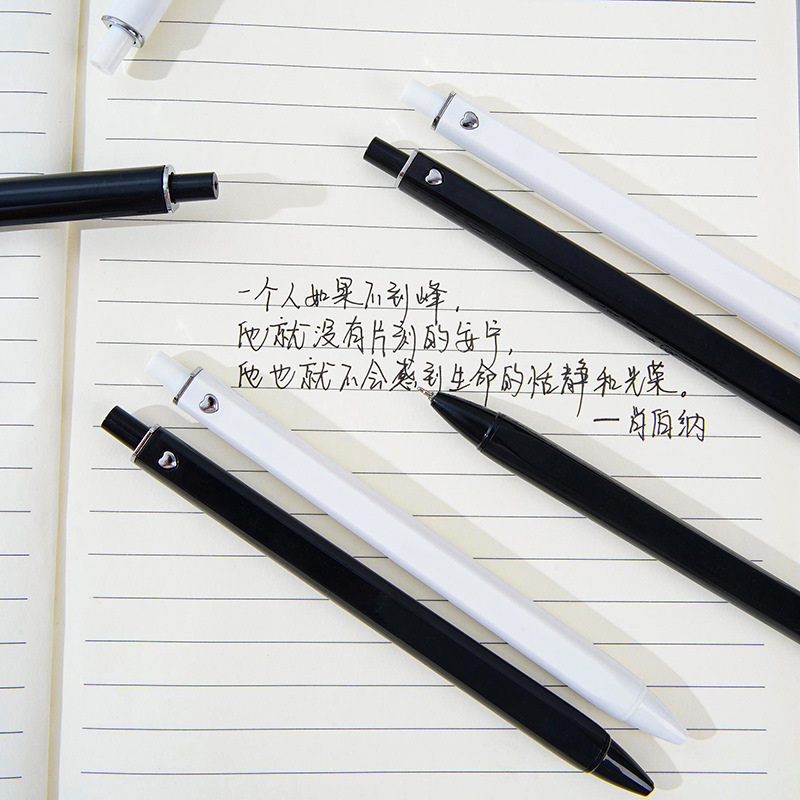 一个人如果不到峰,
他就没有片刻的安宁,
他也就不会感到生命的恬静和光荣。
—肖伯纳